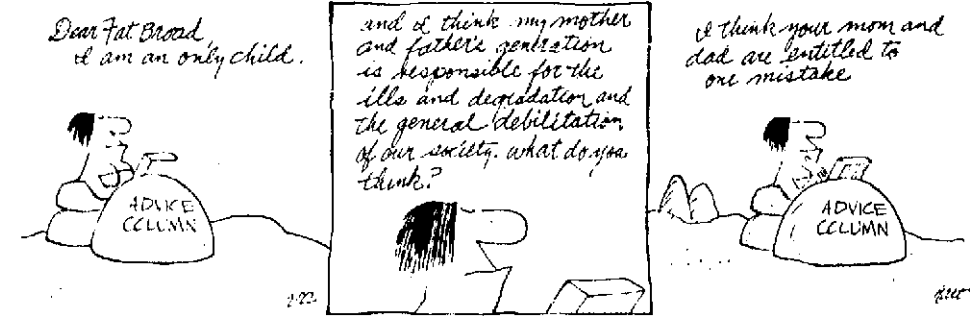 Dear Fat Broad,
I am an only child.
ADVICE
COLUMN
2-22
and I think my mother
and father's generation
is responsible for the
ills and degradation and
the general debilitation
of our society. what do you
think?
I think your mom and
dad are entitled to
one mistake
ADVICE
COLUMN